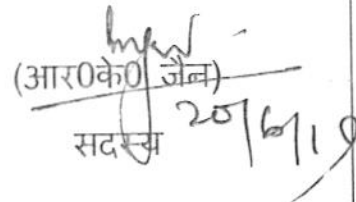 (आर0के0 जैन)
सदस्य
20/6/19